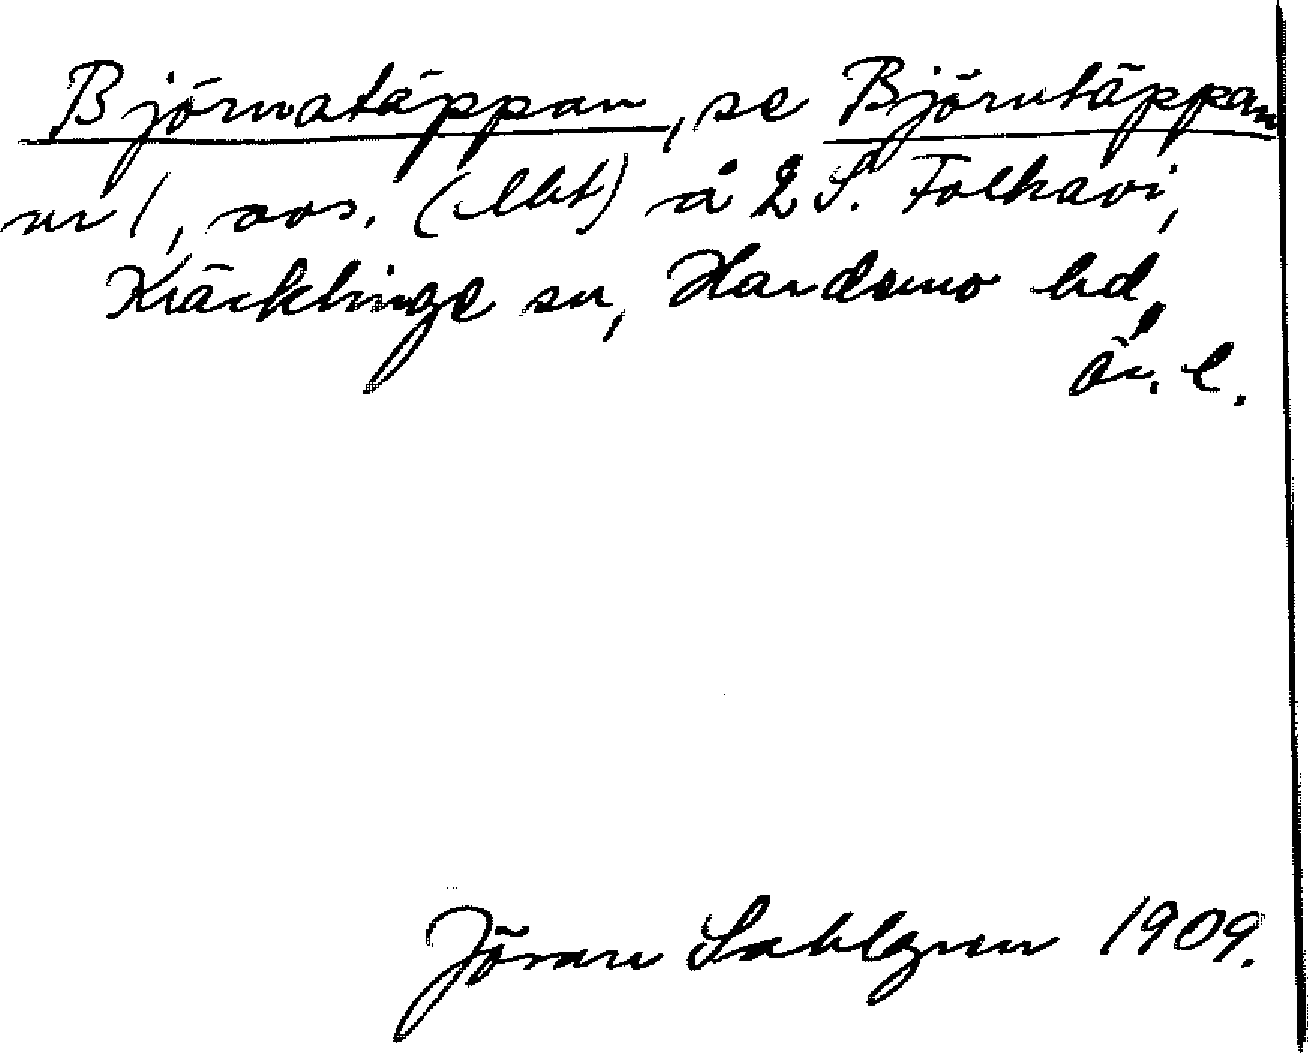 Björnatäppan, se Björntäppan
nr 1, avs. (lht) å 2 S. Folkavi,
Kräcklinge sn, Hardemo hd,
Ör. l.
Jöran Sahlgren 1909.